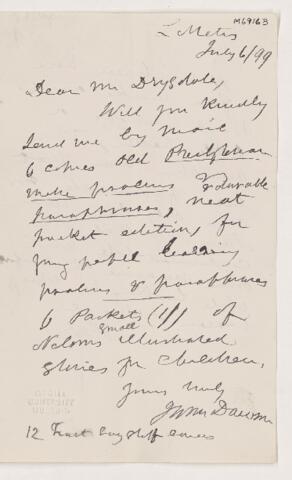 M69163
L. Metis
July 6/99
Dear Mr Drysdale,
Will you kindly
send me by mail
6 copies old Presbyterian
metre psalms & durable
paraphrases, neat
pocket edition, for
young people learning
psalms & paraphrases
6 Packets (1/) of
small
Nelsons illustrated
stories for children.
Yours truly
J Wm Dawson
McGILL
UNIVERSITY
12 stiff covers